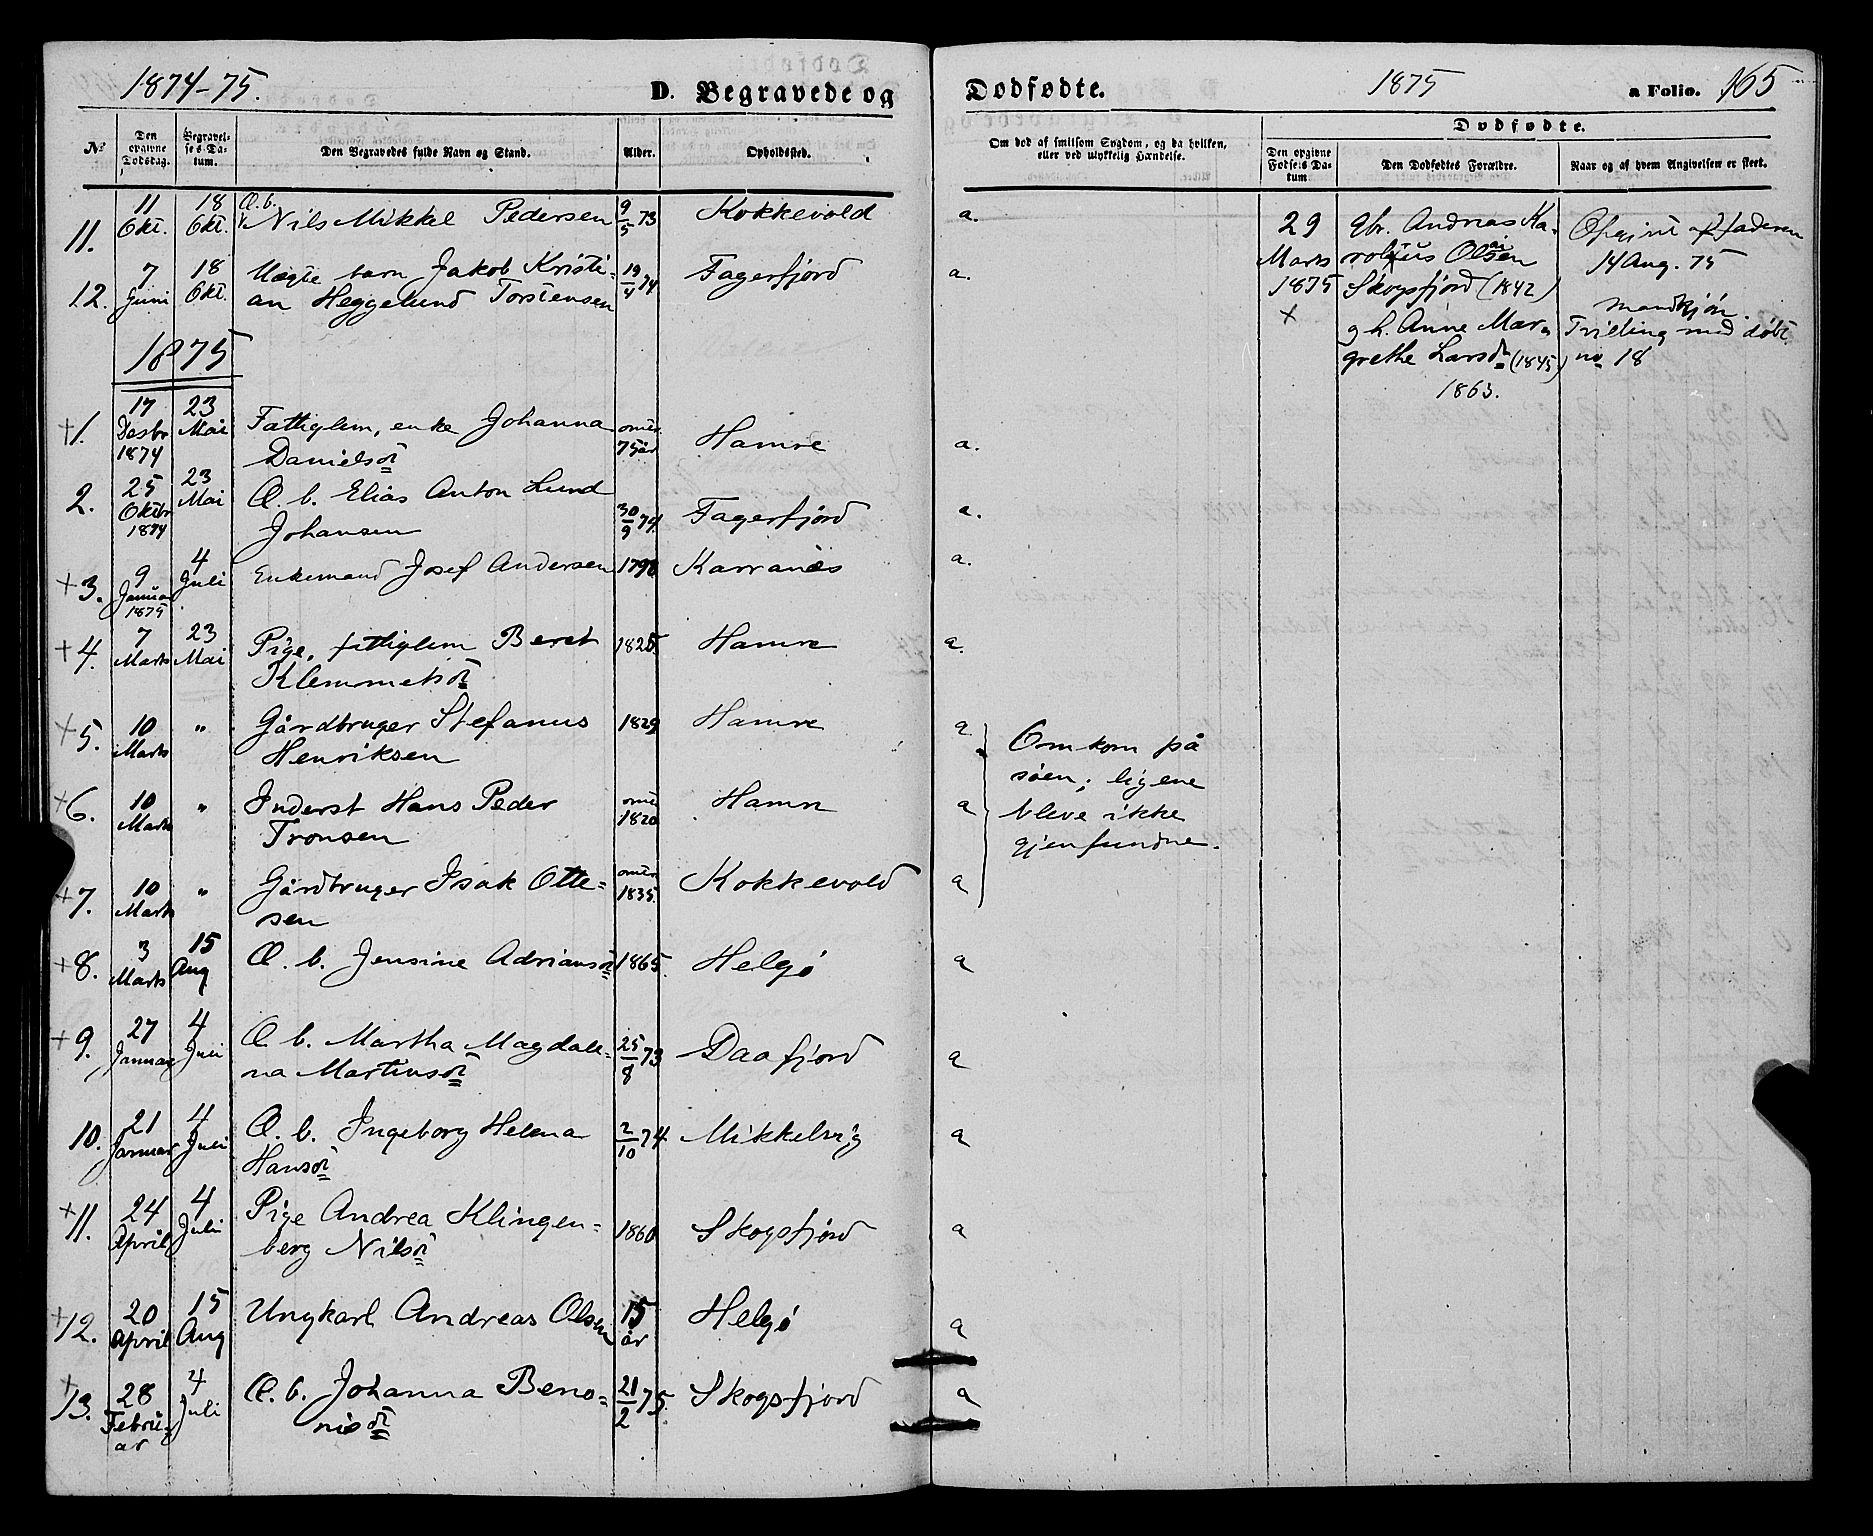 1874-75.
D. Begravede og
№
Den opgivne Dødsdag.
Begravelses Datum.
Den Begravedes fulde Navn og Stand.
Alder.
Opholdssted.
11. 11 Okt. 18 Okt. Æ. b. Nils Mikkel Pedersen 9/5 73 Kokkevold
12. 7 Juni 18 Okt. Uægte barn Jakob Kristi-
an Heggelund Torstensen 19/4 74 Fagerfjord
1875
+1. 17 Desbr 1874 23 Mai Fattiglem, enke Johanna
Danielsdr omtr. 75 år Hamre
2. 25 Oktbr 1874 23 Mai Æ. b. Elias Anton Lund
Johansen 30/9 74. Fagerfjord
+3. 9 Januar 1875 4 Juli Enkemand Josef Andersen 1798 Karranæs
+4. 7 Marts 23 Mai Pige, fattiglem Beret
Klemmetsdr 1825. Hamre
+5. 10 Marts " Gårdbruger Stefanus
Henriksen 1829 Hamre
+6. 10 Marts " Inderst Hans Peder
Tronsen omtr 1820 Hamre
+7. 10 Marts " Gårdbruger Isak Otte-
sen omtr. 1835. Kokkevold
+8. 3 Marts 15 Aug Æ. b. Jensine Adriansdr 1865. Helgø
+9. 27 Januar 4 Juli Æ b. Martha Magdale-
na Martinusdr 25/8 73 Daafjord
10. 21 Januar 4 Juli Æ. b. Ingeborg Helena
Hansdr 2/10 74. Mikkelvig
+11. 24 April 4 Juli Pige Andrea Klingen-
berg Nilsdr 1860 Skogsfjord
+12. 20 April 15 Aug Ungkarl Andreas Olsen 15 år Helgø
+13. 28 Februar 4 Juli Æ. b. Johanna Beno-
nisdr 21/2 75. Skogsfjord
Dødfødte.
1875
a Folio. 165
Om død af smitsom Sygdom, og da hvilken,
eller ved ulykkelig Hændelse.
Dødfødte.
Den opgivne Fødsels Datum
Den Dødfødtes Forældre.
Naar og af hvem Angivelsen er skeet.
a.
a.
a.
a.
a.
a.
a
a
a
a
a
a
a
a
a
Omkom på
søen; ligene
bleve ikke
gjenfundne.
29
Marts
1875
+
gbr. Andreas Ka-
rolius Olsen
Skogsfjord (1842)
g h. Anne Mar-
grethe Larsdr (1845)
1863.
Opgivet af faderen
14 Aug. 75
mandkjøn.
Tvilling med døbt
no 18